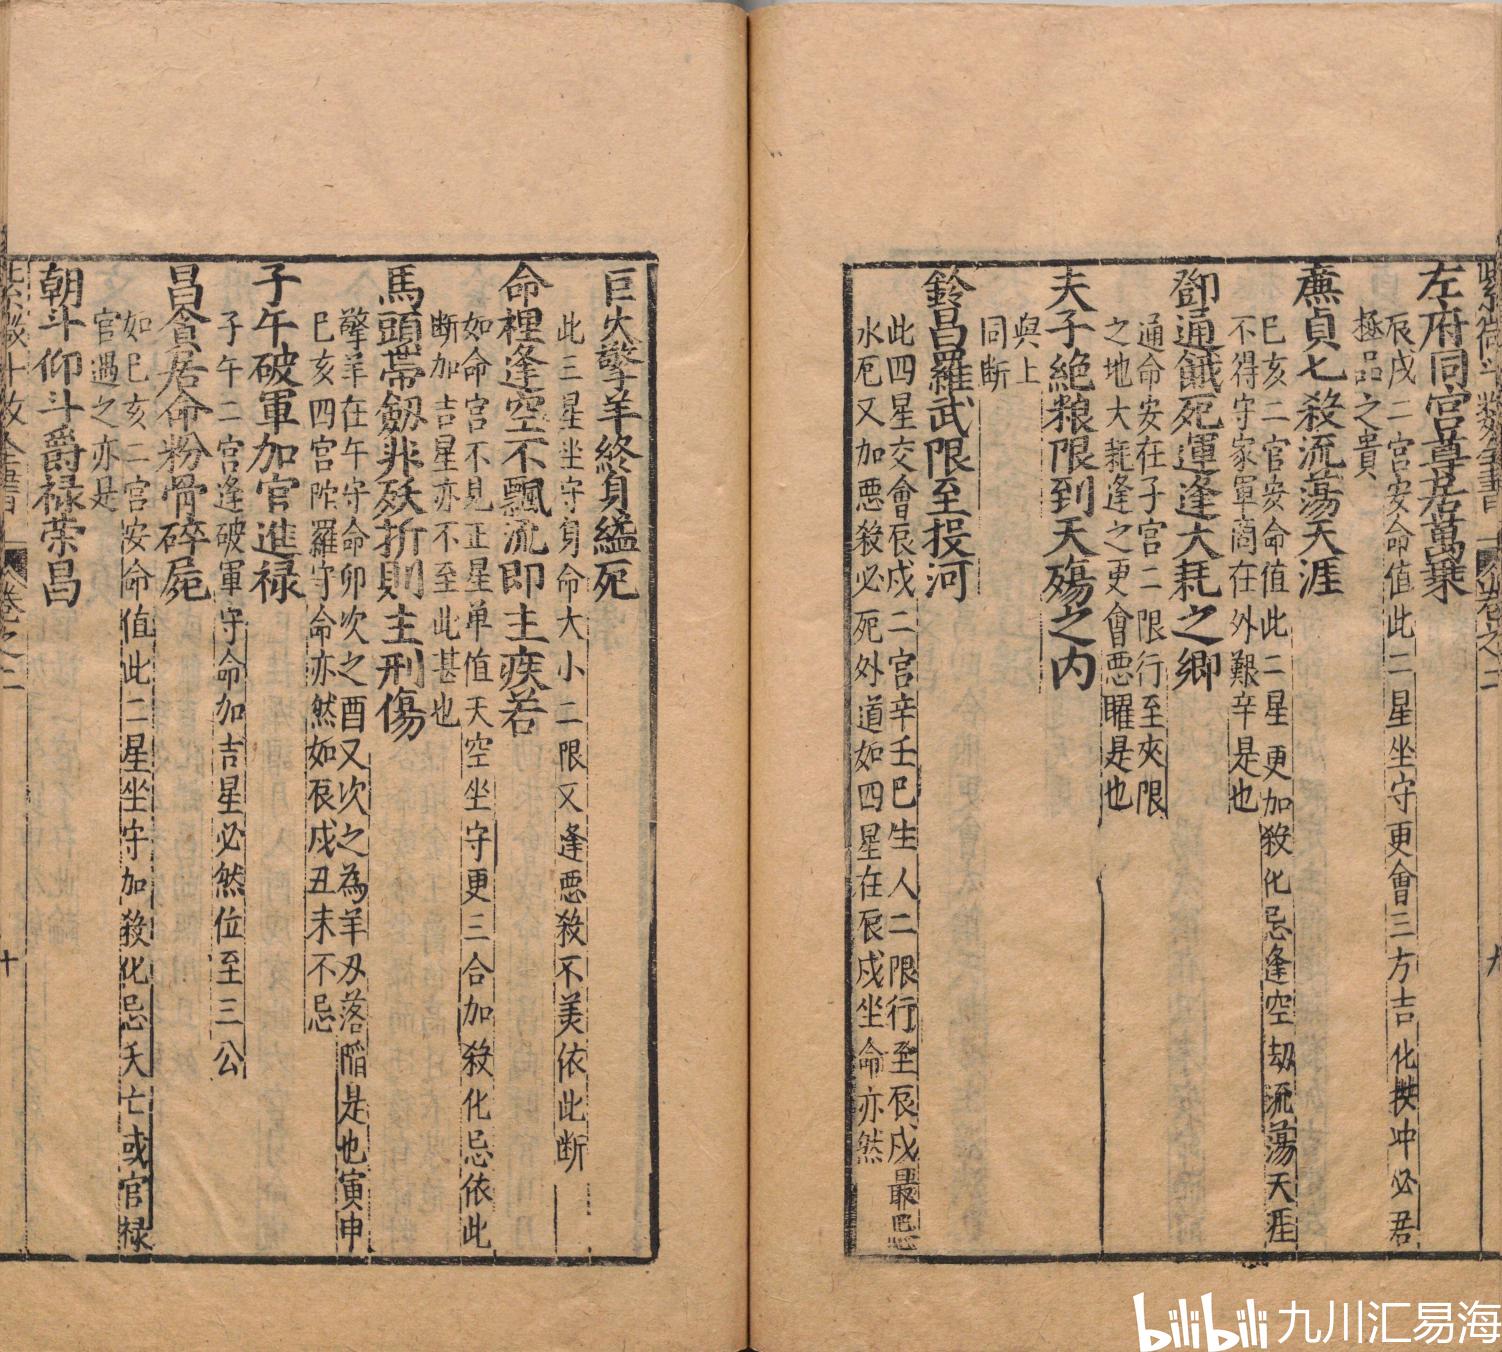 紫微斗数全書 卷之二 九
左府同宮尊居萬乗
辰戌二宮安命值此二星坐守更會三方吉化拱冲必君
極品之貴
亷貞七殺流蕩天涯
巳亥二宮安命值此二星更加殺化忌逢空刼流蕩天涯
不得守家軍商在外艱辛是也
鄧通餓死運逢大耗之鄉
通命安在子宮二限行至夾限
之地大耗逢之更會悪曜是也
夫子絶粮限到天殤之内
與上
同断
鈴昌羅武限至投河
此四星交會辰戌二宮辛壬巳生人二限行至辰戌最悪
水厄又加悪殺必死外道如四星在辰戌坐命亦然
巨火擎羊終身縊死
此三星坐守身命大小二限又逢悪殺不美依此断
命裡逢空不飄流即主疾若
如命宮不見正星单值天空坐守更三合加殺化忌依此
断加吉星亦不至此甚也
馬頭帶劔非殀折則主刑傷
擎羊在午守命卯次之酉又次之為羊刃落陷是也寅申
巳亥四宮陀羅守命亦然如辰戌丑未不忌
子午破軍加官進禄
子午二宮逢破軍守命加吉星必然位至三公
昌貪居命粉骨碎屍
如巳亥二宮安命值此二星坐守加殺化忌夭亡或官禄
官遇之亦是
朝斗仰斗爵禄荣昌
紫微斗数全書 卷之二 十
bilibili 九川汇易海